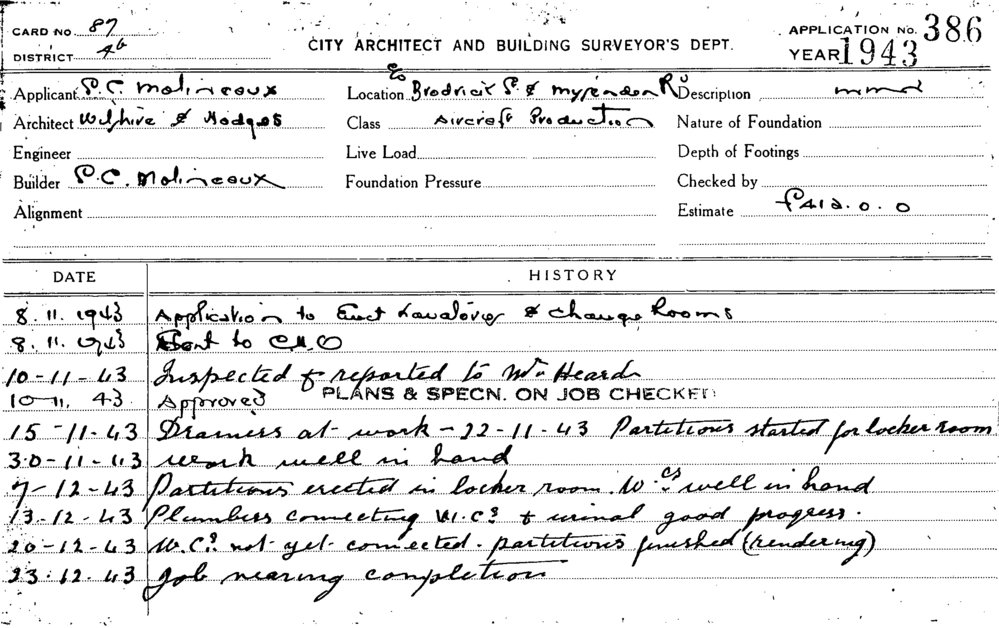 CARD NO. 87
DISTRICT 46
CITY ARCHITECT AND BUILDING SURVEYOR'S DEPT.
APPLICATION NO. 386
YEAR 1943
Applicant P.C. Molineaux
Location Brodrick St & Rd
Description
Architect & Hodges
Class Aircraft Production
Nature of Foundation
Engineer
Live Load
Depth of Footings
Builder P.C. Molineaux
Foundation Pressure
Checked by
Alignment
Estimate £412.0.0
DATE HISTORY
8.11.1943 Application to Erect Lavatories & Change Rooms
8.11.1943 Sent to
10-11-43 Inspected & reported to Mr Heard
10-11.43 Approved PLANS & SPECN. ON JOB CHECKED
15-11-43 Drainers at work - 22-11-43 Partitions started for locker room
30-11-43 work well in hand
7-12-43 Partitions erected in locker room. W.Cs well in hand
13-12-43 Plumbers connecting W.Cs & urinal good progress.
20-12-43 W.Cs not yet connected. partitions finished (rendering)
23.12.43 Job nearing completion